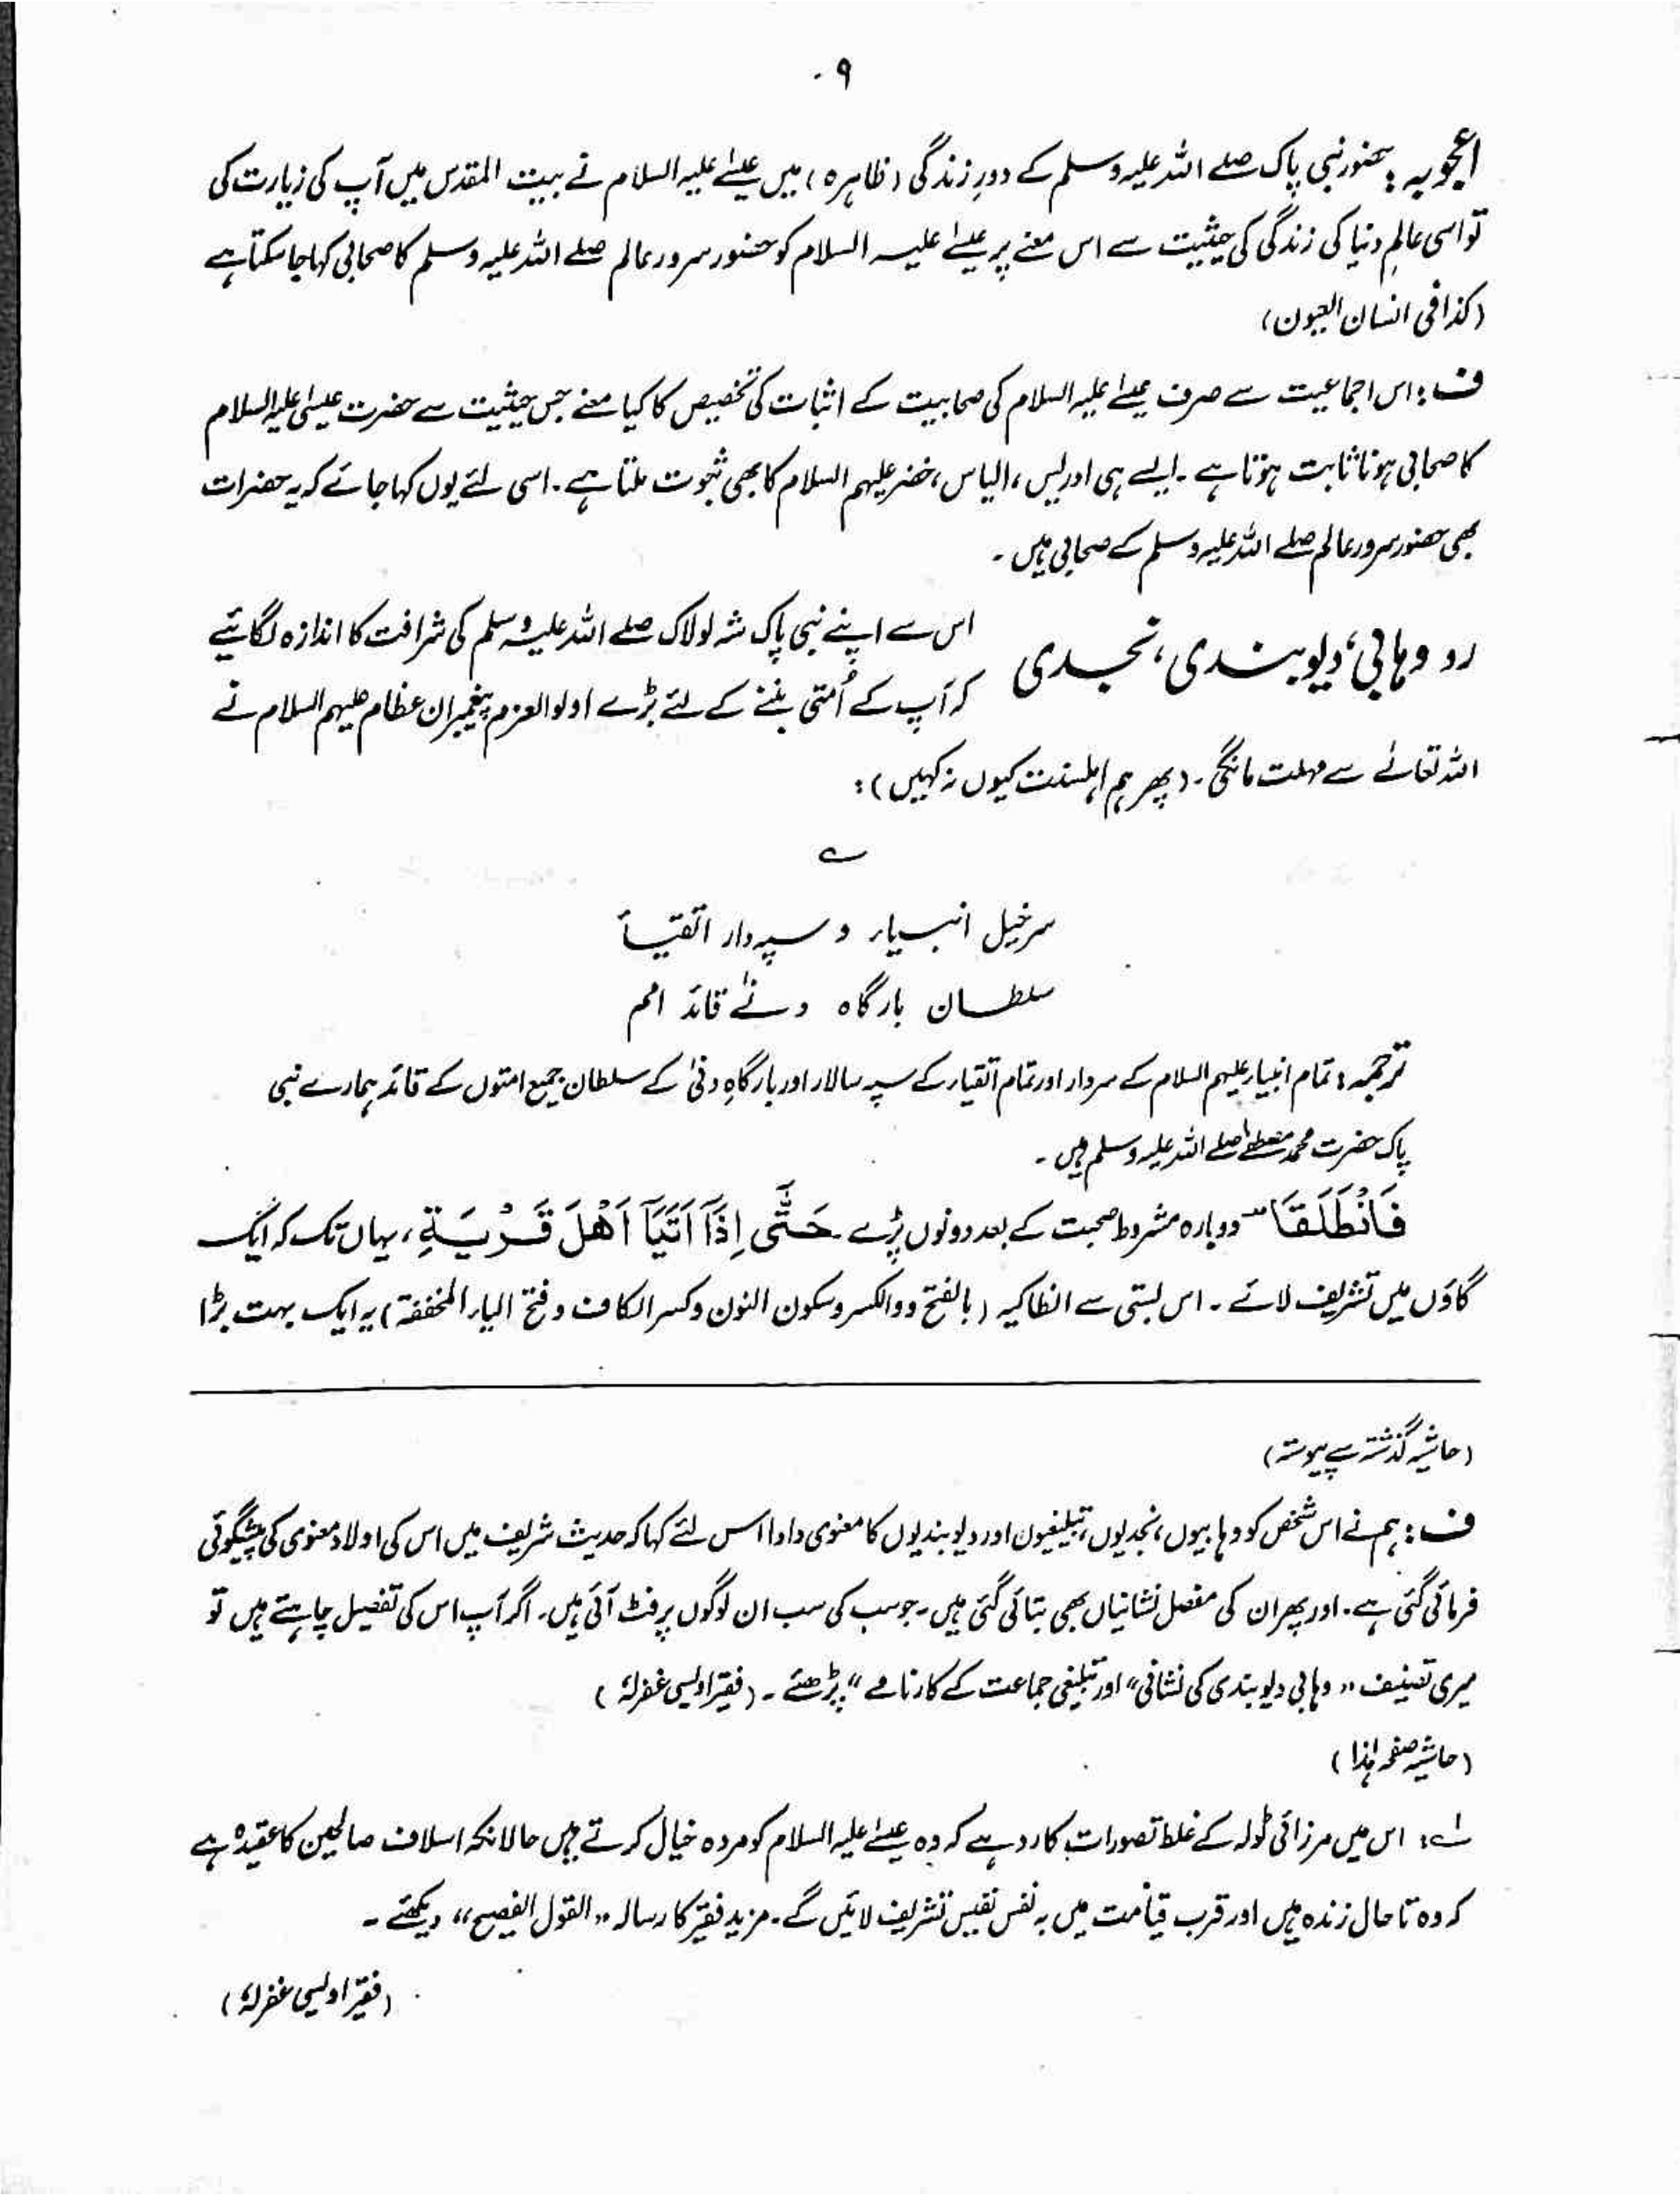 ۹
اعجوبہ : حضور نبی پاک صلے اللہ علیہ وسلم کے دور زندگی (ظاہرہ) میں عیسےٰ علیہ السلام نے بیت المقدس میں آپ کی زیارت کی
تو اسی عالمِ دنیا کی زندگی کی حیثیت سے اس معنے پر عیسےٰ علیہ السلام کو حضور سرور عالم صلے اللہ علیہ وسلم کا صحابی کہا جا سکتا ہے
(کذا فی انسان العیون)
ف : اس اجماعیت سے صرف عیسےٰ علیہ السلام کی صحابیت کے اثبات کی تخصیص کا کیا معنے جس حیثیت سے حضرت عیسیٰ علیہ السلام
کا صحابی ہونا ثابت ہوتا ہے ۔ ایسے ہی ادریس ، الیاس ، خضر علیہم السلام کا بھی ثبوت ملتا ہے ۔ اسی لئے یوں کہا جائے کہ یہ حضرات
بھی حضور سرور عالم صلے اللہ علیہ وسلم کے صحابی ہیں ۔
رد وہابی ، دیوبندی ، نجدی
اس سے اپنے نبی پاک شہ لولاک صلے اللہ علیہ وسلم کی شرافت کا اندازہ لگائیے
کہ آپ کے اُمتی بننے کے لئے بڑے اولوالعزم پیغمبران عظام علیہم السلام نے
اللہ تعالےٰ سے مہلت مانگی ۔ (پھر ہم اہلسنت کیوں نہ کہیں) :
؎
سرخیل انبیاء و سپہ دار اتقیاء
سلطان بارگاہ دنےٰ قائد امم
ترجمہ : تمام انبیاء علیہم السلام کے سردار اور تمام اتقیاء کے سپہ سالار اور بارگاہِ دنیٰ کے سلطان جمیع امتوں کے قائد ہمارے نبی
پاک حضرت محمد مصطفےٰ صلے اللہ علیہ وسلم ہیں ۔
فَانْطَلَقَا دوبارہ مشروط صحبت کے بعد دونوں پڑے ۔ حَتّٰۤی اِذَاۤ اَتَیَاۤ اَهْلَ قَرْیَةِ ، یہاں تک کہ ایک
گاؤں میں تشریف لائے ۔ اس بستی سے انطاکیہ (بالفتح و والکسر وسکون النون وکسر الکاف و فتح الیاء المخففۃ) یہ ایک بہت بڑا
(حاشیہ گذشتہ سے پیوستہ)
ف : ہم نے اس شخص کو وہابیوں ، نجدیوں ، تبلیغیوں اور دیوبندیوں کا معنوی دادا اس لئے کہا کہ حدیث شریف میں اس کی اولاد معنوی کی پیشگوئی
فرمائی گئی ہے ۔ اور پھر ان کی مفصل نشانیاں بھی بتائی گئی ہیں ۔ جو سب کی سب ان لوگوں پر فٹ آئی ہیں ۔ اگر آپ اس کی تفصیل چاہتے ہیں تو
میری تصنیف " وہابی دیوبندی کی نشانی" اور تبلیغی جماعت کے کارنامے" پڑھئے ۔ (فقیر اویسی غفرلہٗ)
(حاشیہ صفحہ ہذا)
لہ : اس میں مرزائی ٹولہ کے غلط تصورات کا رد ہے کہ وہ عیسےٰ علیہ السلام کو مردہ خیال کرتے ہیں حالانکہ اسلاف صالحین کا عقیدہ ہے
کہ وہ تا حال زندہ ہیں اور قرب قیامت میں بہ نفس نفیس تشریف لائیں گے ۔ مزید فقیر کا رسالہ " القول الفصیح " دیکھئے ۔
(فقیر اویسی غفرلہٗ)